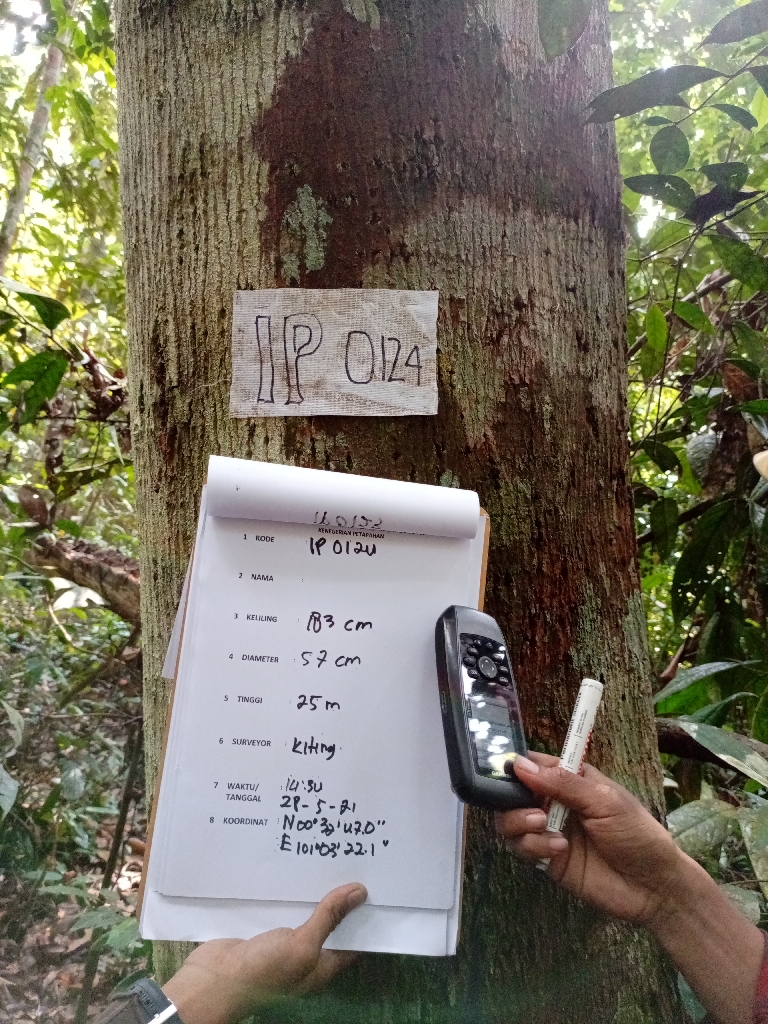 IP 0124
KENEGERIAN PETAPAHAN
1 KODE : IP 0124
2 NAMA :
3 KELILING : 183 cm
4 DIAMETER : 57 cm
5 TINGGI : 25 m
6 SURVEYOR : Kiting
7 WAKTU/ 14:30
TANGGAL 28-5-21
8 KOORDINAT N00°32'47.0"
E101°03'22.1"